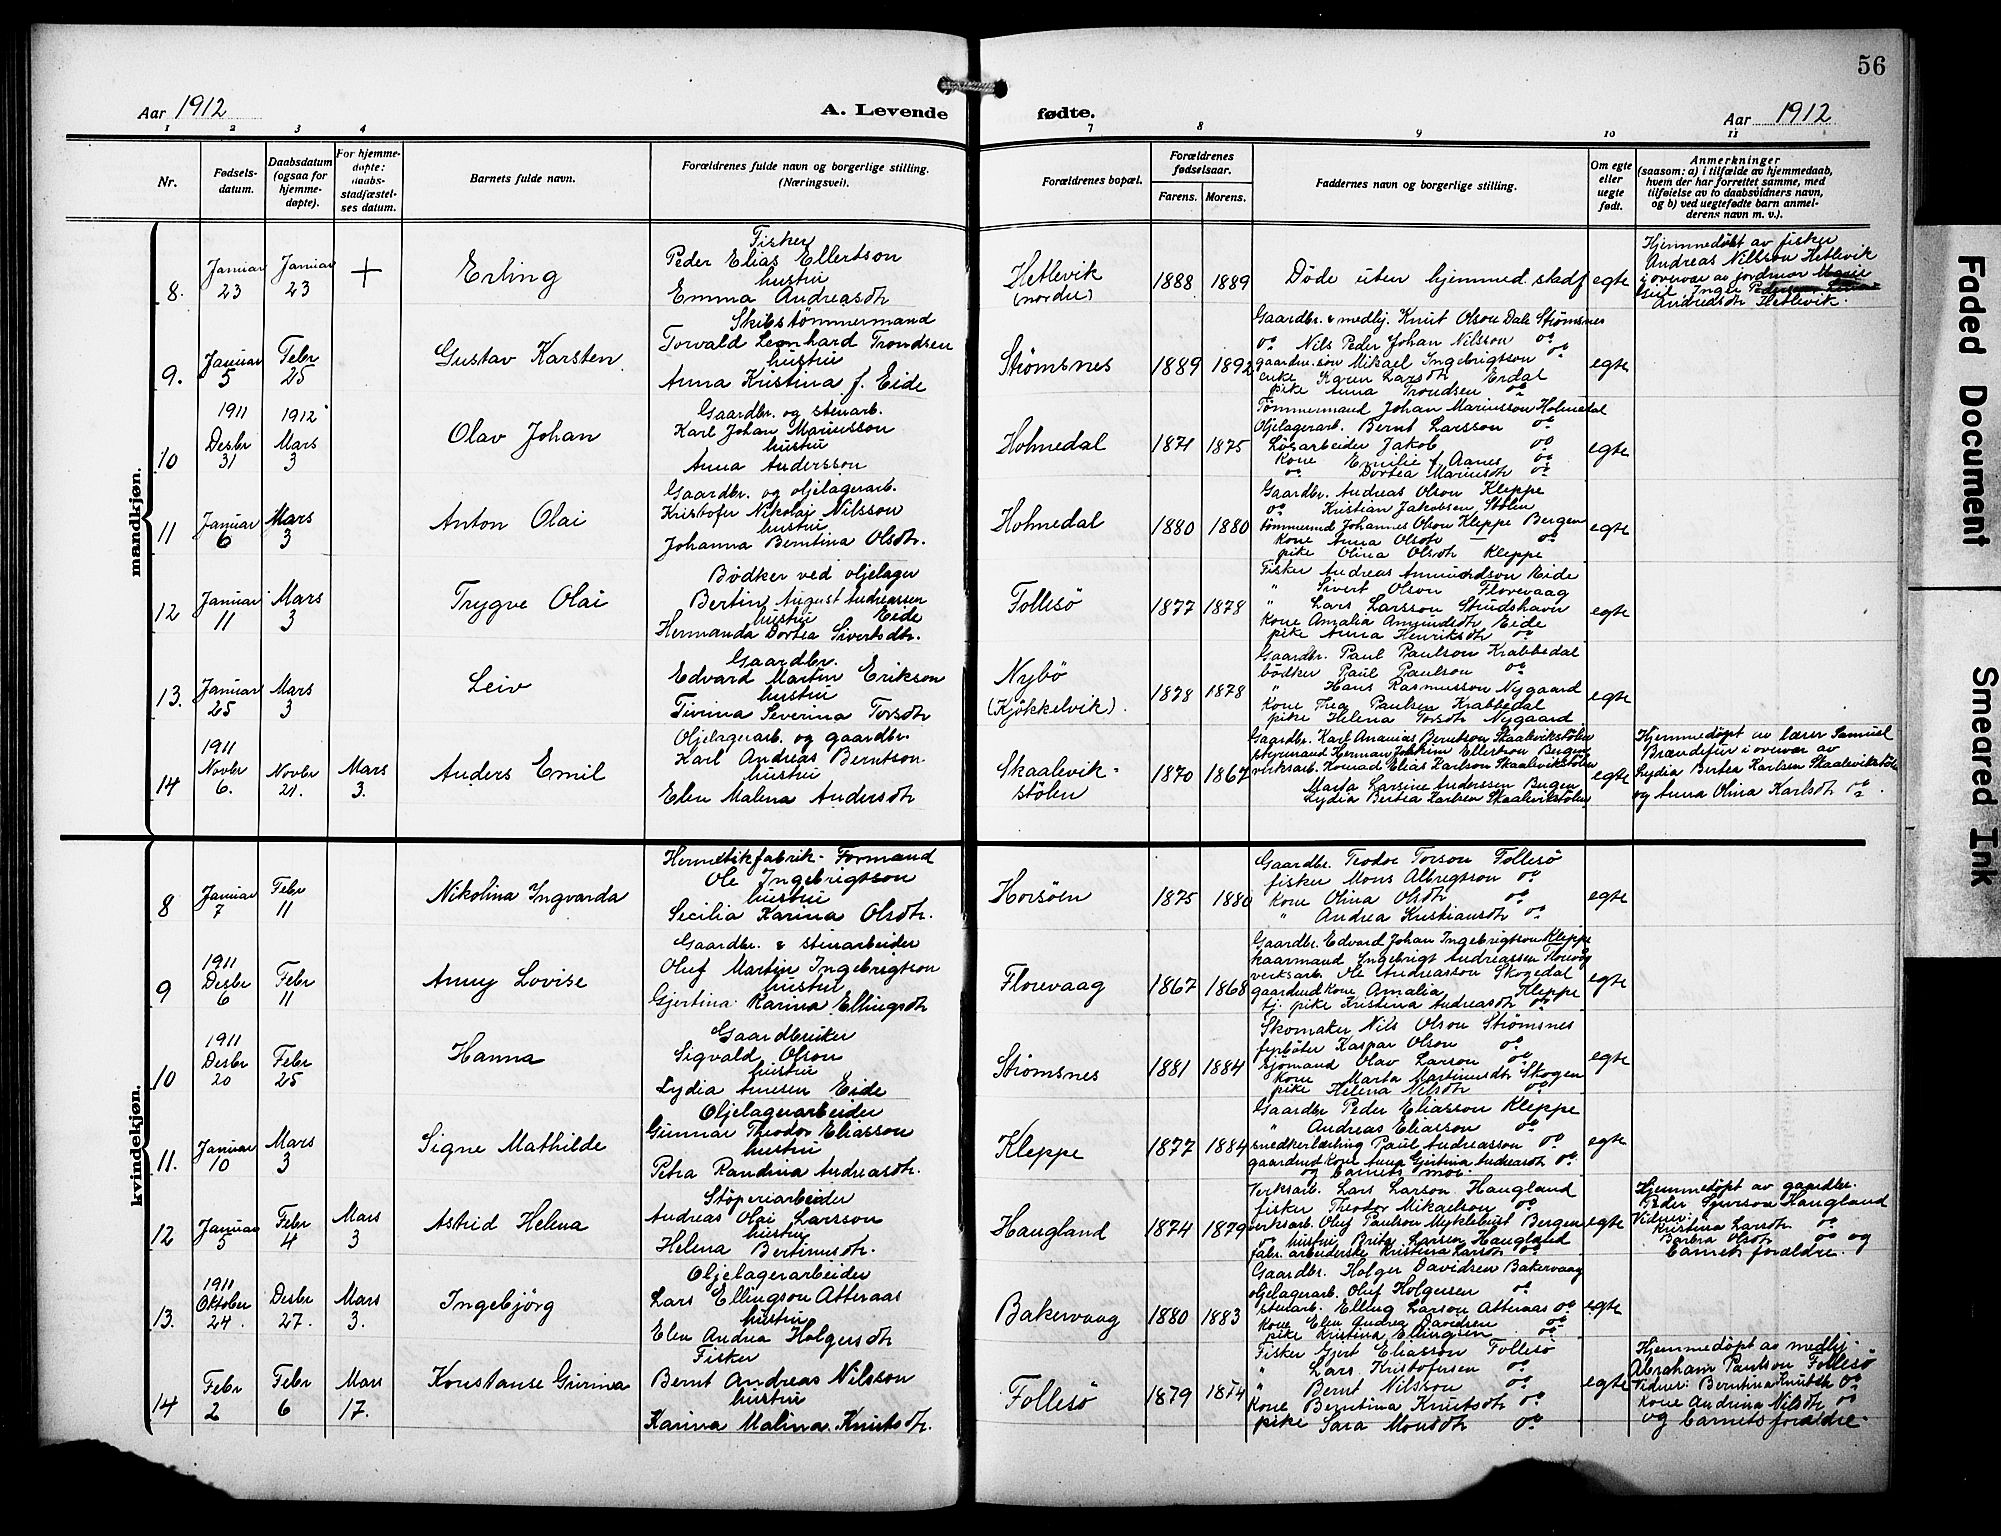 56
Aar 1912
A. Levende fødte.
Aar 1912
1 2 3 4 7 8 9 10 11
Nr.
Fødsels-
datum.
Daabsdatum
(ogsaa for
hjemme-
døpte).
For hjemme-
døpte:
daabs-
stadfæstel-
ses datum.
Barnets fulde navn.
Forældrenes fulde navn og borgerlige stilling.
(Næringsvei).
Forældrenes bopæl.
Forældrenes
fødselsaar.
Farens. Morens.
Faddernes navn og borgerlige stilling.
Om egte
eller
uegte
født.
Anmerkninger
(saasom: a) i tilfælde av hjemmedaab,
hvem der har forrettet samme, med
tilføielse av to daabsvidners navn,
og b) ved uegtefødte barn anmel-
derens navn m. v.).
mandkjøn.
8. Januar 23 Januar 23 + Erling
Fisker
Peder Elias Ellertson
hustru
Emma Andreasdtr
Hetlevik
(nordre)
1888 1889
Døde uten hjemmed. stadf
egte
Hjemmedøbt av fisker
Andreas Nilsson Hetlevik
i overvær av jordmor
Andreasdtr Hetlevik.
9. Januar 5 Febr 25 Gustav Karsten.
Skibstømmermand
Torvald Leonhard Trondsen
hustru
Anna Kristina f. Eide
Strømsnes
1889 1892
Gaardbr. & medhj. Knut Olson Dale Strømsnes
do Nils Peder Johan Nilsson do
gaardm. søn Mikael Ingebrigtson do
enke Karen Larsdtr Erdal
pike Anna Trondsen do
egte
10 1911 Desbr 31 1912 Mars 3 Olav Johan
Gaardbr. og stenarb.
Karl Johan Mariusson
hustru
Anna Andersson
Holmedal
1871 1875
Tømmermand Johan Mariusson Holmedal
Oljelagerarb. Bernt Larsson do
Løsarbeider Jakob do
Kone Emilie f. Aanes do
do Dortea Mariusdtr do
egte
11 Januar 6 Mars 3 Anton Olai
Gaardbr. og oljelagerarb.
Kristofer Nikolai Nilsson
hustru
Johanna Berntina Olsdtr.
Holmedal
1880 1880
Gaardbr. Andreas Olson Kleppe
do Kristian Jakobsen Stølen
tømmermd Johannes Olson Kleppe Bergen
Kone Anna Olson do
pike Olina Olsdtr Kleppe
egte
12 Januar 11 Mars 3 Trygve Olai
Bødker ved oljelager
Bertin August Andreassen
hustru Eide
Hermanda Dortea Sivertsdtr.
Follesö
1877 1878
Fisker Andreas Amundson Eide
" Sivert Olson Florevaag
" Lars Larsson Strudshavn
Kone Amalia Amundsdtr Eide
pike Anna Henriksdtr do
egte
13. Januar 25 Mars 3 Leiv
Gaardbr.
Edvard Martin Erikson
hustru
Tivina Severina Torsdtr
Nybö
(Kjøkkelvik).
1878 1878
Gaardbr. Paul Paulson Krabbedal
bødker Paul Paulson do
" Hans Rasmusson Nygaard
Kone Thea Paulsen Krabbedal
pike Helena Torsdtr Nygaard
egte
14 1911 Novbr 6. Novbr 21. Mars 3. Anders Emil
Oljelagerarb. og gaardbr.
Karl Andreas Berntson
hustru
Elen Malena Andersdtr
Skaalevik-
stølen
1870 1867
Gaardbr. Karl Ananias Berntson Skaalevikstølen
styrmand Herman Joakim Ellertson Bergen
verksarb. Konrad Elias Karlson Skaalevikstølen
Marta Larsine Anderssen Bergen
Lydia Bertea Karlsen Skaalevikstølen
egte
Hjemmedøpt av lærer Samuel
i overvær av
Lydia Bertea Karlsen Skaalevikstølen
og Anna Olina Karlsdtr do.
kvindekjøn.
8 Januar 7 Febr 11 Nikolina Ingvarda
Hermetikfabrik-Formand
Ole Ingebrigtson
hustru
Secilia Karina Olsdtr.
Horsöen
1875 1880
Gaardbr. Teodor Torson Follesö
fisker Mons Albregtson do
Kone Olina Olsdtr do
" Andrea Kristiansdtr do
egte
9 1911 Desbr 6 Febr 11 Anny Lovise
Gaardbr. & stenarbeider
Oluf Martin Ingebrigtson
hustru
Gjertina Karina Ellingsdtr
Florevaag
1867 1868
Gaardbr. Edvard Johan Ingebrigtson Kleppe
kaarmand Ingebrigt Andreassen Florvåg
verksarb. Ole Andreasson Skogedal
gaardmd kone Amalia Kleppe
tj. pike Kristina Andreasdtr do
egte
10 1911 Desbr 20 Febr 25 Hanna
Gaardbruker
Sigvald Olson
hustru
Lydia Amesen Eide
Strømsnes
1881 1884
Skomaker Nils Olson Strømsnes
fyrbøter Kaspar Olson do
sjømand Olav Larson do
Kone Marta Martinusdtr Skogen
pike Helena Nilsdtr do
egte
11. Januar 10 Mars 3 Signe Mathilde
Oljelagerarbeider
Gunnar Theodor Eliasson
hustru
Petra Randina Andreasdtr.
Kleppe
1877 1884
Gaardbr Peder Eliasson Kleppe
" Andreas Eliasson do
snedkerlærling Paul Andreasson do
gaardmd kone Anna Gjertina Andreasdtr do
og barnets mor.
egte
12 Januar 5 Febr 4 Mars 3 Astrid Helena
Støperiarbeider
Andreas Olai Larsson
hustru
Helena Bertinusdtr.
Haugland
1874 1879
Verksarb. Lars Larson Haugland
fisker Theodor Mikaelson do
verksarb. Oluf Paulson Myklebust Bergen
do hustru Brita Larsen Haugland
fabr. arbeiderske Kristina Larsdtr do
egte
Hjemmedøpt av gaardbr.
Peder Sjurson Haugland
Vidner:
Kristina Larsdtr do
Barbra Olsdtr do og
barnets forældre.
13. 1911 Oktober 24. Desbr 27. Mars 3. Ingebjørg
Oljelagerarbeider
Lars Ellingson Atteraas
hustru
Elen Andrea Holgersdtr
Bakervaag
1880 1883
Gaardbr. Holger Davidsen Bakervaag
oljelagerarb. Oluf Holgersen do
stenarb. Elling Larson Atteraas do
Kone Elen Andrea Davidsen do
pike Kristina Ellingsen do
egte
14 Febr 2 Febr 6 Mars 17. Konstanse Gurina
Fisker
Bernt Andreas Nilsson
hustru
Karina Malina Knutsdtr.
Follesö
1879 1874
Fisker Gjert Eliasson Follesö
" Lars Kristofersen do
" Bernt Nilsson do
Kone Berntina Knutsdtr do
pike Sara Monsdtr do
egte
Hjemmedøpt av medhj.
Abraham Paulson Follesö
Vidner: Berntina Knutsdtr do
Kone Andrina Nilsdtr do
og barnets forældre.
Faded Document
Smeared Ink